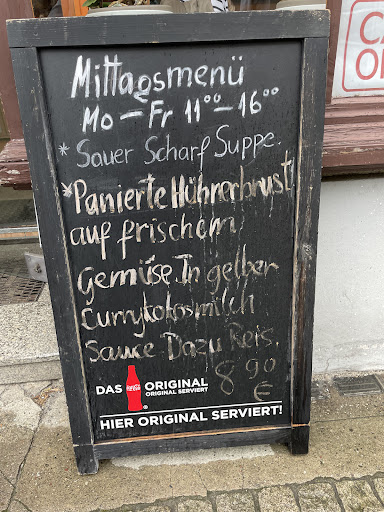 Mittagsmenü
Mo – Fr 11⁰⁰ – 16⁰⁰
* Sauer Scharf Suppe.
* Panierte Hühnerbrust
auf frischem
Gemüse. In gelber
Currykokosmilch
Sauce. Dazu Reis.
8 90 €
DAS ORIGINAL
ORIGINAL SERVIERT
HIER ORIGINAL SERVIERT!